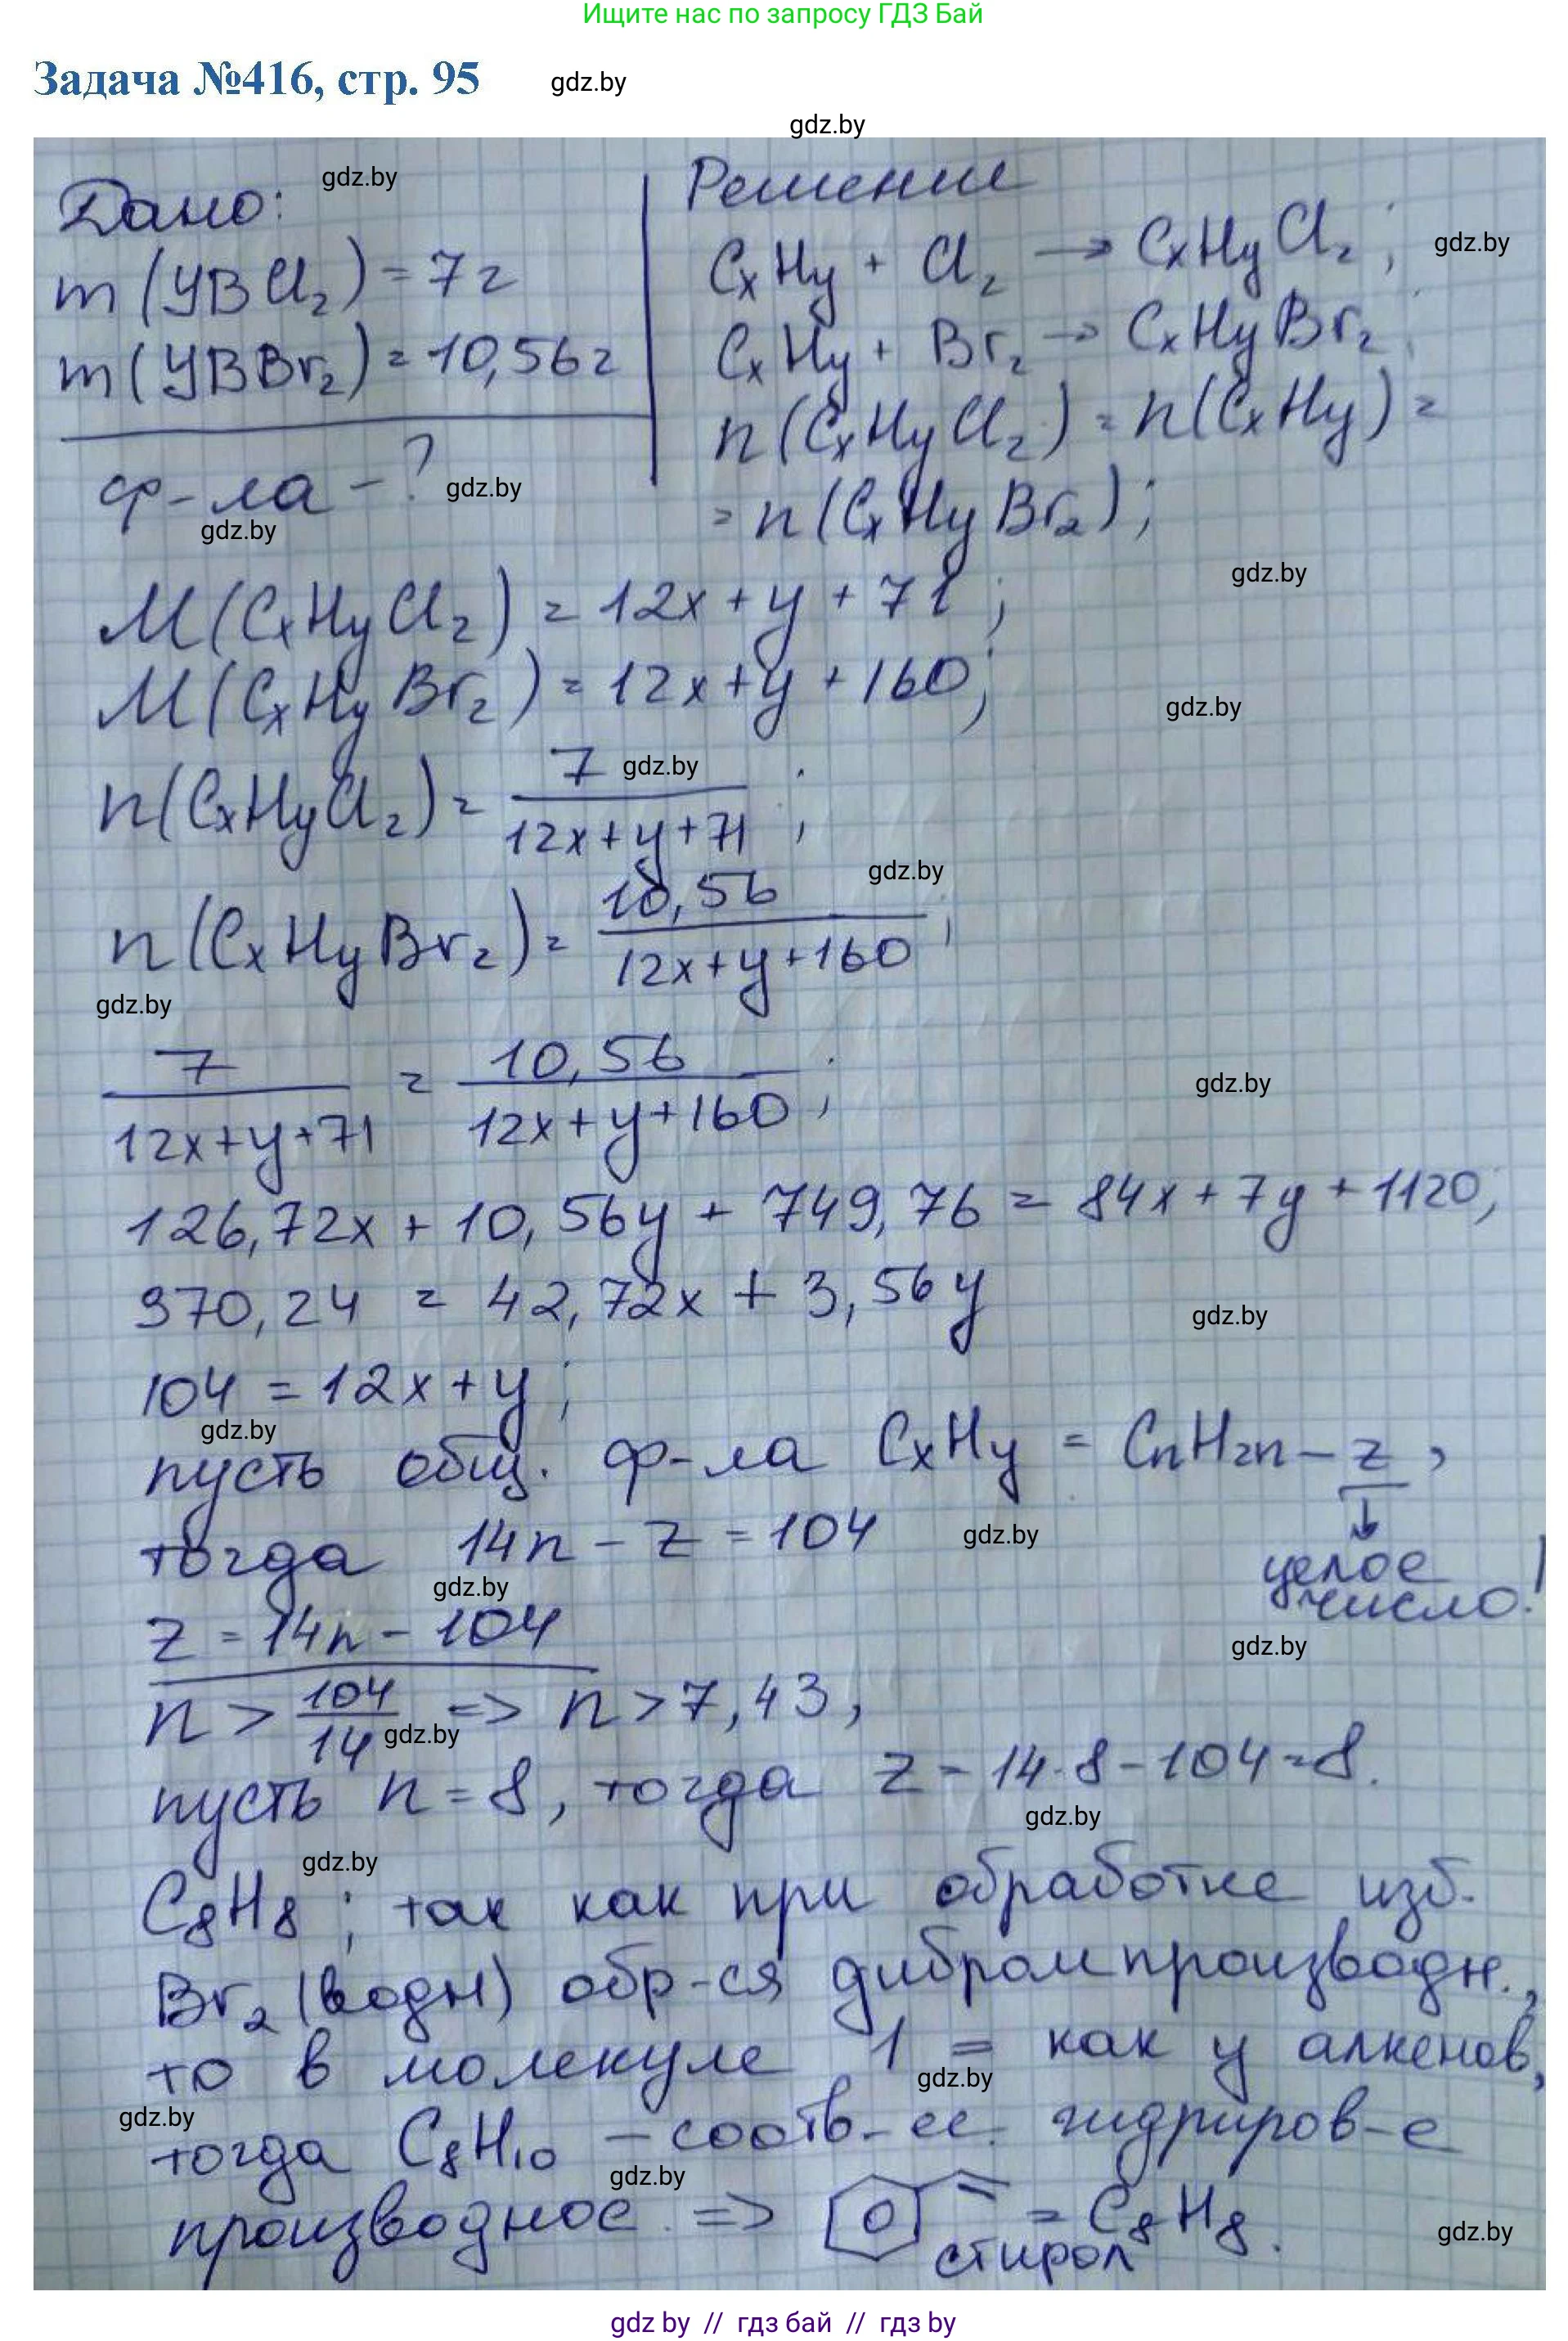 Ищите нас по запросу ГДЗ Бай
Задача №416, стр. 95 gdz.by
gdz.by
Дано: gdz.by
m (УВCl₂) = 7г
m (УВBr₂) = 10,56г
ф-ла - ? gdz.by
gdz.by
Решение
CxHy + Cl₂ → CxHyCl₂; gdz.by
CxHy + Br₂ → CxHyBr₂;
n(CxHyCl₂) = n(CxHy) =
= n(CxHyBr₂);
gdz.by
M(CxHyCl₂) = 12x + y + 71;
M(CxHyBr₂) = 12x + y + 160;
gdz.by
n(CxHyCl₂) = 7 / (12x + y + 71); gdz.by
gdz.by
n(CxHyBr₂) = 10,56 / (12x + y + 160);
gdz.by
7 / (12x + y + 71) = 10,56 / (12x + y + 160); gdz.by
126,72x + 10,56y + 749,76 = 84x + 7y + 1120;
370,24 = 42,72x + 3,56y
gdz.by
104 = 12x + y;
gdz.by
пусть общ. ф-ла CxHy = CnH2n-z,
↓
целое
число!
тогда 14n - z = 104 gdz.by
gdz.by
z = 14n - 104
gdz.by
n > 104/14 => n > 7,43,
gdz.by
пусть n = 8, тогда z = 14·8 - 104 = 8.
gdz.by
gdz.by
C₈H₈; так как при обработке изб.
Br₂ (водн) обр-ся дибромпроизводн.,
то в молекуле 1 = как у алкенов,
gdz.by
gdz.by
тогда C₈H₁₀ - соотв-ее гидриров-е
gdz.by
производное => = C₈H₈.
стирол
gdz.by
gdz by // гдз бай // гдз by